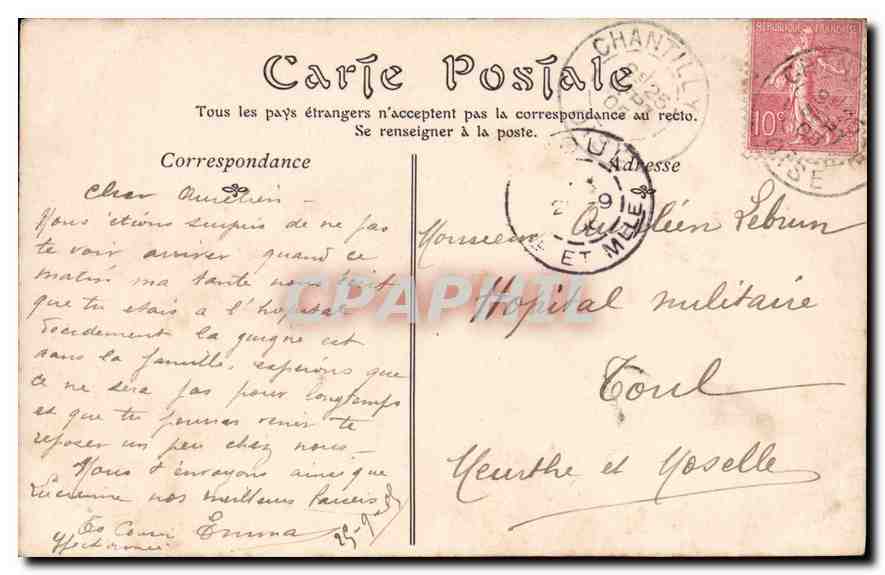 Carte Postale
Tous les pays étrangers n'acceptent pas la correspondance au recto.
Se renseigner à la poste.
Correspondance
Adresse
REPUBLIQUE FRANÇAISE
10c
CHANTILLY
25
OISE
ET MLLE
CPAPHIL
Cher Aurélien –
Nous étions surpris de ne pas
te voir arriver quand ce
matin ma tante nous dit
que tu etais a l'hopital
decidement la guigne est
dans la famille, espérons que
ce ne sera pas pour longtemps
et que tu pourras venir te
reposer un peu chez nous –
Nous t'envoyons ainsi que
nos meilleurs
Ta Cousine
Emma
25-9-05
Monsieur Aurélien Lebrun
Hopital militaire
Toul
Meurthe et Moselle